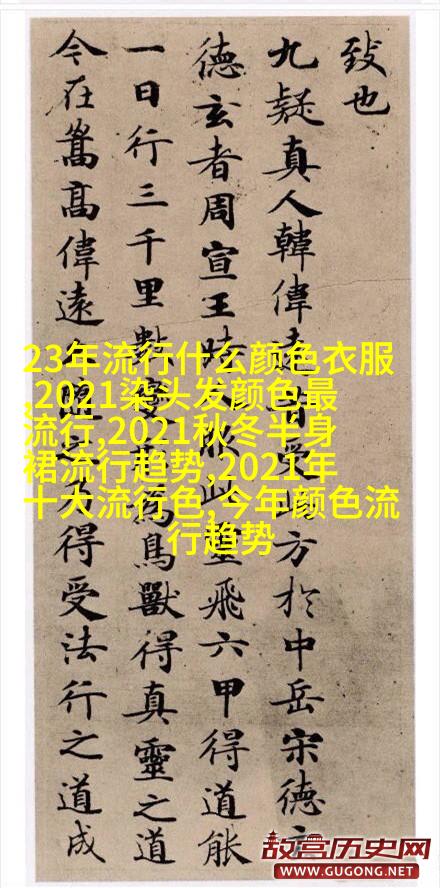 致也
九疑真人韓偉遠昔受此方於中岳宋德玄
德玄者周宣王時服此靈飛六甲得道能
一日行三千里數變為鳥獸得真靈之道
今在嵩高偉遠隨之乃得受法行之道成
23年流行什么颜色衣服
,2021染头发颜色最
流行,2021秋冬半身
裙流行趋势,2021年
十大流行色,今年颜色流
行趋势
故宫历史网
WWW.GUGONG.NET